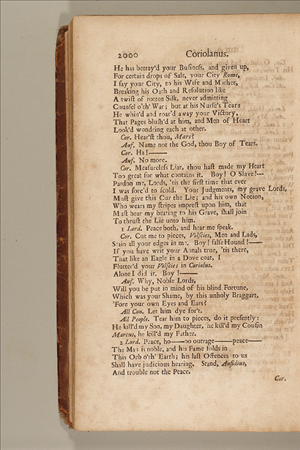 2000 Coriolanus.
He has betray'd your Business, and given up,
For certain drops of Salt, your City Rome,
I say your City, to his Wife and Mother,
Breaking his Oath and Resolution like
A twist of rotten Silk, never admitting
Counsel o'th' War; but at his Nurse's Tears
He whin'd and roar'd away your Victory,
That Pages blush'd at him, and Men of Heart
Look'd wondring each at other.
Cor. Hear'st thou, Mars?
Auf. Name not the God, thou Boy of Tears.
Cor. Ha!
Auf. No more.
Cor. Measureless Liar, thou hast made my Heart
Too great for what contains it. Boy! O Slave!—
Pardon me, Lords, 'tis the first time that ever
I was forc'd to scold. Your Judgments, my grave Lords,
Must give this Cur the Lie; and his own Notion,
Who wears my stripes imprest upon him, that
Must bear my beating to his Grave, shall join
To thrust the Lie unto him.
1 Lord. Peace both, and hear me speak.
Cor. Cut me to pieces, Volscies, Men and Lads,
Stain all your edges in me. Boy! false Hound!—
If you have writ your Annals true, 'tis there,
That like an Eagle in a Dove-coat, I
Flutter'd your Volscies in Coriolus.
Alone I did it. Boy!
Auf. Why, Noble Lords,
Will you be put in mind of his blind Fortune,
Which was your Shame, by this unholy Braggart,
'Fore your own Eyes and Ears?
All Con. Let him dye for't.
All People. Tear him to pieces, do it presently:
He kill'd my Son, my Daughter, he kill'd my Cousin
Marcus, he kill'd my Father.
2 Lord. Peace, ho——no outrage——peace——
The Man is noble, and his Fame folds in
This Orb o'th' Earth; his last Offences to us
Shall have judicious hearing. Stand, Aufidius,
And trouble not the Peace.
Cor.